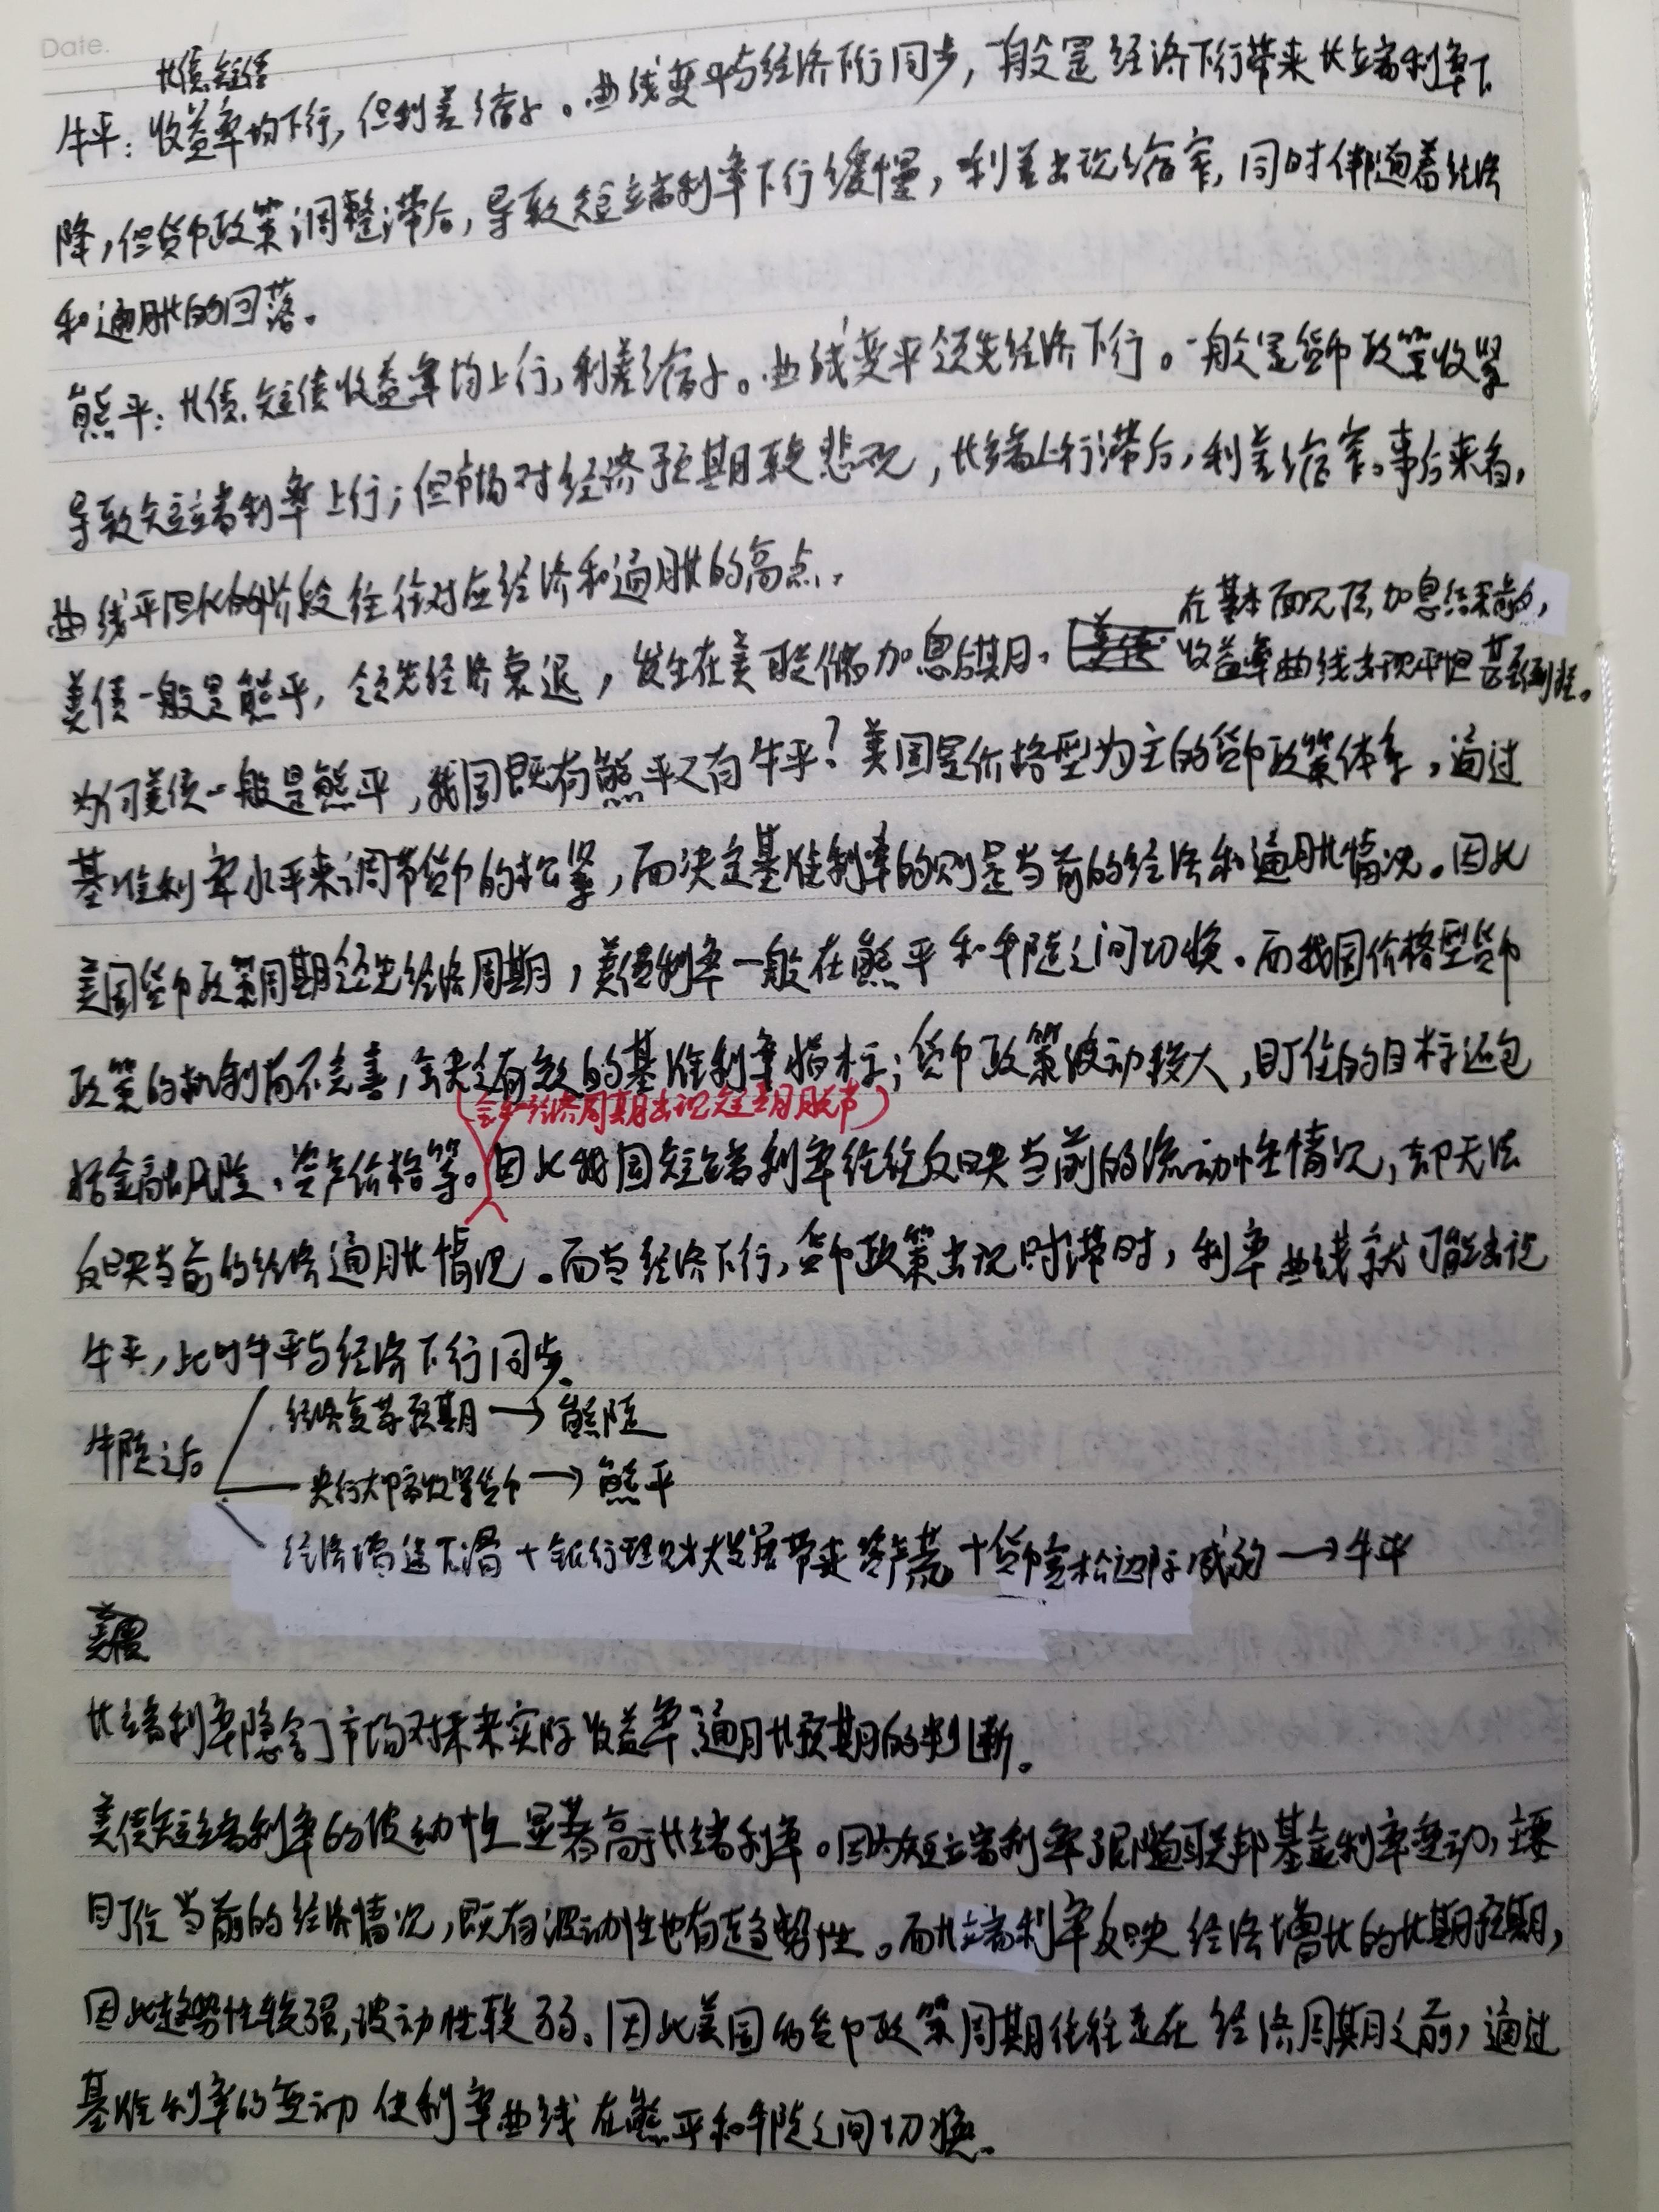 Date.
长债、短债
牛平：收益率均下行，但利差缩小。曲线变平与经济下行同步，一般是经济下行带来长端利率下
降，但货币政策调整滞后，导致短端利率下行缓慢，利差出现缩窄，同时伴随着经济
和通胀的回落。
熊平：长债、短债收益率均上行，利差缩小。曲线变平领先经济下行。一般是货币政策收紧
导致短端利率上行；但市场对经济预期较悲观，长端上行滞后，利差缩窄。事后来看，
曲线平坦化的阶段往往对应经济和通胀的高点。
在基本面见顶、加息结束前，
美债一般是熊平，领先经济衰退，发生在美联储加息后期。收益率曲线出现平坦甚至倒挂。
为何美债一般是熊平，我国既有熊平又有牛平？美国是价格型为主的货币政策体系，通过
基准利率水平来调节货币的松紧，而决定基准利率的则是当前的经济和通胀情况。因此
美国货币政策周期领先经济周期，美债利率一般在熊平和牛陡之间切换。而我国价格型货币
政策的机制尚不完善，缺乏有效的基准利率指标；货币政策波动较大，盯住的目标还包
(会与经济周期出现短期脱节)
括金融风险、资产价格等。因此我国短端利率往往反映当前的流动性情况，却无法
反映当前的经济通胀情况。而当经济下行，货币政策出现时滞时，利率曲线就可能出现
牛平，此时牛平与经济下行同步。
经济复苏预期→熊陡
牛陡之后
央行大幅收紧货币→熊平
经济增速下滑+银行理财大发展带来资产荒+货币宽松边际减弱→牛平
长端利率隐含了市场对未来实际收益率、通胀预期的判断。
美债短端利率的波动性显著高于长端利率。因为短端利率跟随联邦基金利率变动，主要
盯住当前的经济情况，既有波动性也有趋势性。而长端利率反映经济增长的长期预期，
因此趋势性较强，波动性较弱。因此美国的货币政策周期往往走在经济周期之前，通过
基准利率的变动使利率曲线在熊平和牛陡之间切换。